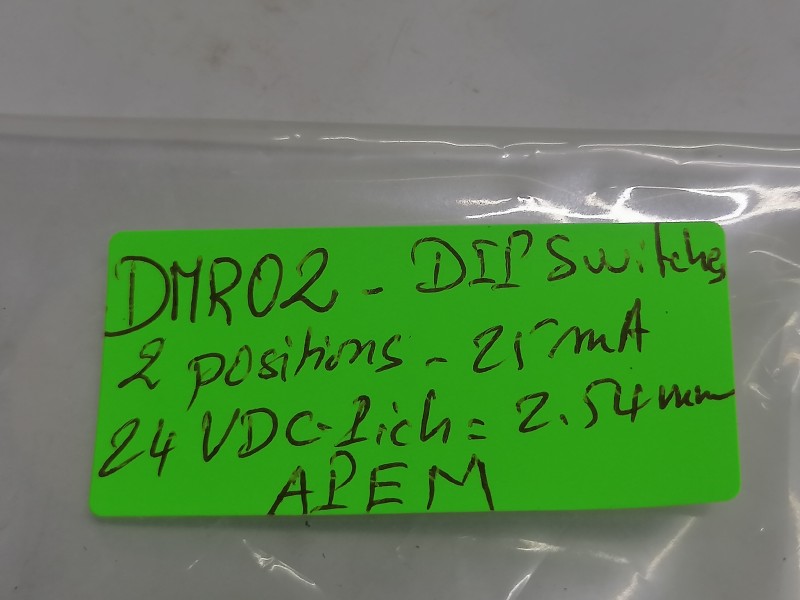 DMR02 - DIP Switches
2 positions - 25 mA
24 VDC - Pich = 2.54 mm
APEM